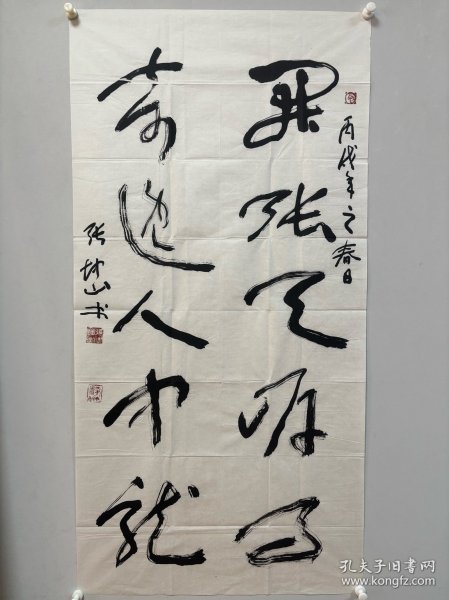 丙戌年之春日
開張天岸馬
奇逸人中龍
張坤山书
孔夫子旧书网
www.kongfz.com